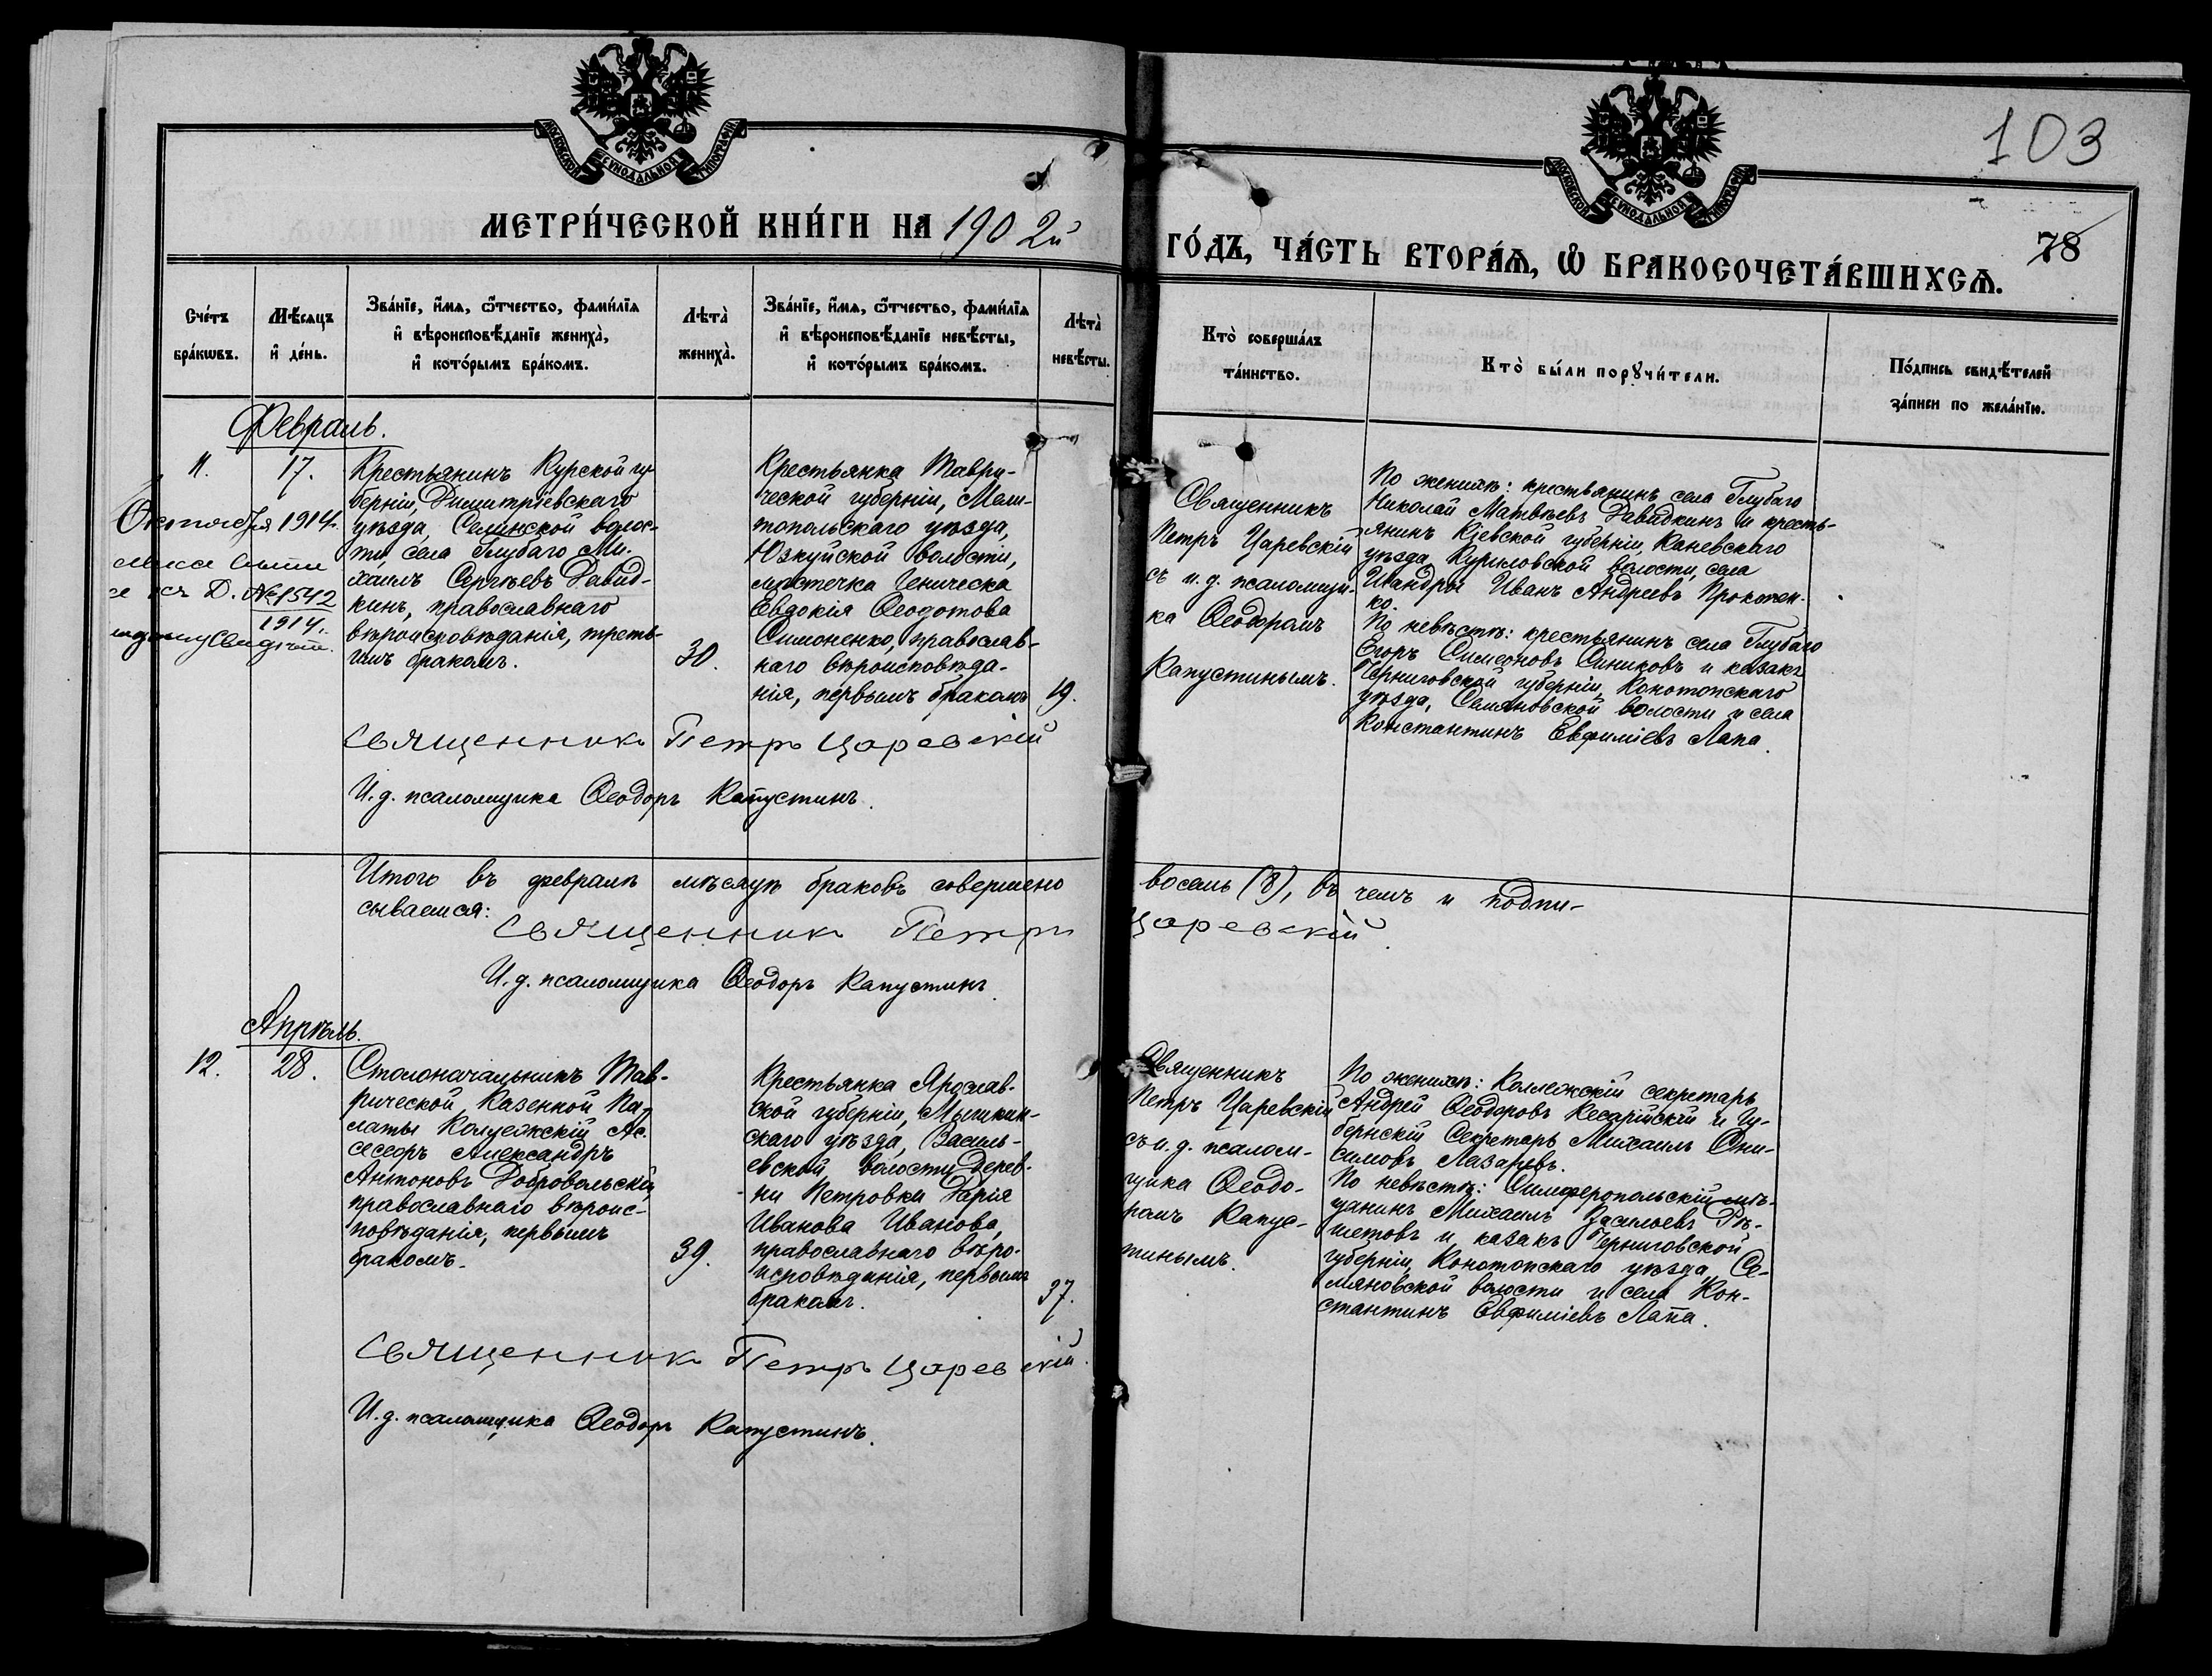 МОСКОВСКОЙ СѴНОДАЛЬНОЙ ТИПОГРАФІИ.
МОСКОВСКОЙ СѴНОДАЛЬНОЙ ТИПОГРАФІИ.
103
МЕТРИ́ЧЕСКОЙ КНИ́ГИ НА 1902й
ГО́ДЪ, ЧА́СТЬ ВТОРА́Ѧ, Ѽ БРАКОСОЧЕТА́ВШИХСѦ.
78
Сче́тъ бра́кѡвъ.
Мѣ́сяцъ и҆ де́нь.
Зва́нїе, и҆́мѧ, ѻ҆́тчество, фами́лїѧ
и҆ вѣроисповѣ́данїе жениха̀,
и҆ кото́рымъ бра́комъ.
Лѣта̀ жениха̀.
Зва́нїе, и҆́мѧ, ѻ҆́тчество, фами́лїѧ
и҆ вѣроисповѣ́данїе невѣ́сты,
и҆ кото́рымъ бра́комъ.
Лѣта̀ невѣ́сты.
Кто̀ соверша́лъ та́инство.
Кто̀ бы́ли порꙋчи́тели.
По́дпись свидѣ́телей
за́писи по жела́нїю.
Февраль.
11.
17.
Октября 1914.
№ 1542
1914.
Крестьянинъ Курской гу-
берніи, Димитріевскаго
уѣзда, Селинской волос-
ти, села Глубаго Ми-
хаилъ Сергѣевъ Давид-
кинъ, православнаго
вѣроисповѣданія, треть-
имъ бракомъ.
30.
Крестьянка Таври-
ческой губерніи, Мели-
топольскаго уѣзда,
Юзкуйской волости,
мѣстечка Геническа
Евдокія Ѳеодотова
Симоненко, православ-
наго вѣроисповѣда-
нія, первымъ бракомъ
19.
Священникъ
Петръ Царевскій
съ и. д. псаломщи-
ка Ѳеодоромъ
Капустинымъ.
По женихѣ: крестьянинъ села Глубаго
Николай Матвѣевъ Давидкинъ и кресть-
янинъ Кіевской губерніи, Каневскаго
уѣзда, Куриловской волости, села
Шандры Иванъ Андреевъ
ко.
По невѣстѣ: крестьянинъ села Глубаго
Егоръ Симеоновъ Синиковъ и казакъ
Черниговской губерніи, Конотопскаго
уѣзда, Семяновской волости и села
Константинъ Евфиміевъ Лапа.
Священникъ Петръ Царевскій
И. д. псаломщика Ѳеодоръ Капустинъ.
Итого въ февралѣ мѣсяцѣ браковъ совершено восемь (8), въ чемъ и подпи-
сываемся:
Священникъ Петръ Царевскій.
И. д. псаломщика Ѳеодоръ Капустинъ.
Апрѣль.
12.
28.
Столоначальникъ Тав-
рической Казенной Па-
латы Коллежскій Ас-
сесоръ Александръ
Антоновъ Добровольскій,
православнаго вѣроис-
повѣданія, первымъ
бракомъ.
39.
Крестьянка Ярослав-
ской губерніи, Мышкин-
скаго уѣзда, Василь-
евской волости, дерев-
ни Петровки Дарія
Иванова Иванова,
православнаго вѣро-
исповѣданія, первымъ
бракомъ.
37.
Священникъ
Петръ Царевскій
съ и. д. псалом-
щика Ѳеодо-
ромъ Капус-
тинымъ.
По женихѣ: Коллежскій секретарь
Андрей Ѳеодоровъ Кесарійскій и Гу-
бернскій Секретарь Михаилъ Они-
симовъ Лазаревъ.
По невѣстѣ: Симферопольскій мѣ-
щанинъ Михаилъ Васильевъ Рѣ-
шетовъ и казакъ Черниговской
губерніи, Конотопскаго уѣзда, Се-
мяновской волости и села Кон-
стантинъ Евфиміевъ Лапа.
Священникъ Петръ Царевскій.
И. д. псаломщика Ѳеодоръ Капустинъ.